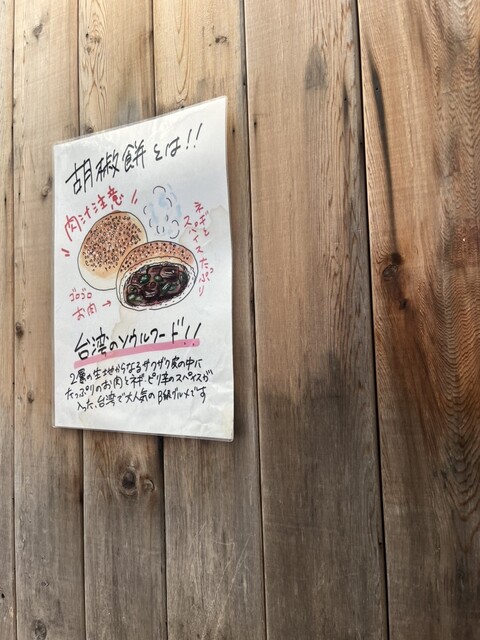 胡椒餅とは!!
肉汁注意!!
ネギと
スパイスたっぷり
ゴロゴロ
お肉→
台湾のソウルフード!!
2層の生地からなるサクサク皮の中に
たっぷりのお肉とネギ、ピリ辛のスパイスが
入った、台湾で大人気のB級グルメです